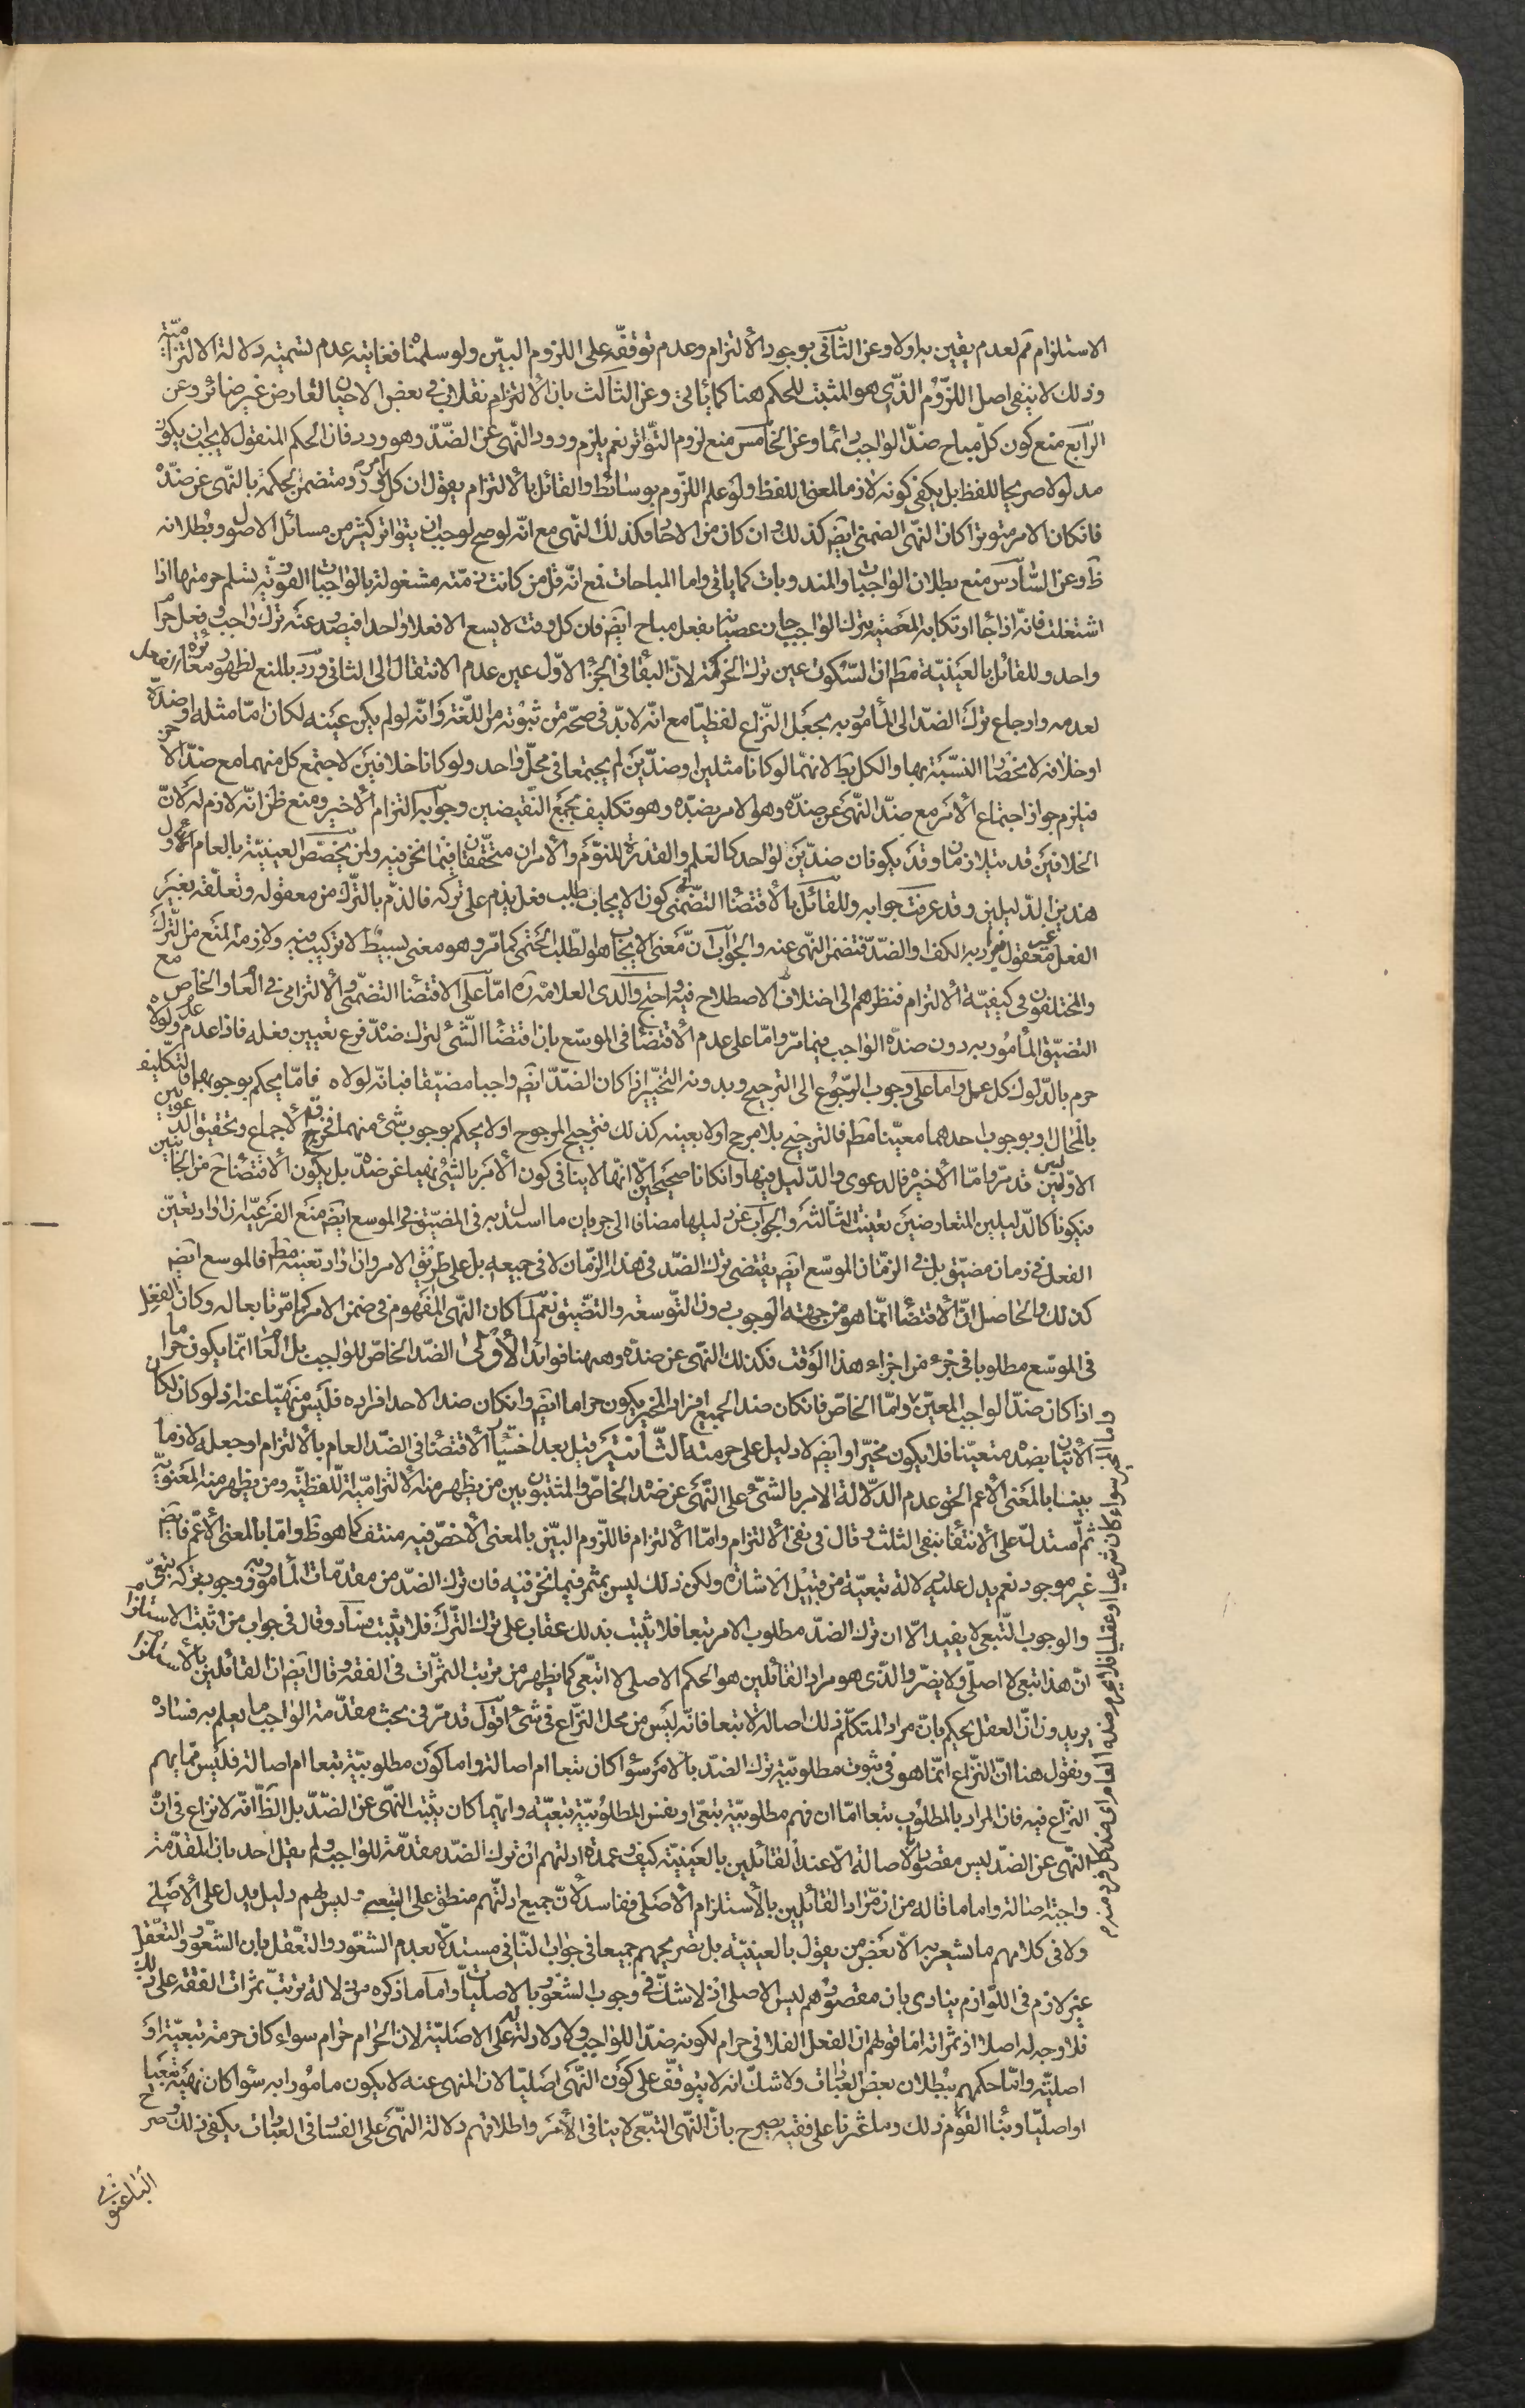 الاستلزام ثم لعدم يقين به اولا وعن الثاني بوجود الالتزام وعدم توقفه على اللزوم البين ولو سلمنا فغايته عدم تسميته دلالة الالتزامية
وذلك لا ينفى اصل اللزوم الذى هو المثبت للحكم هنا كما ياتى وعن الثالث بان الالتزام نقلانى فى بعض الاحيان التعارض غير ضائر وعن
الرابع منع كون كل مباح ضد الواجب دائما وعن الخامس منع لزوم التواتر نعم يلزم ورود النهى عن الضد وهو ورد فان الحكم المنقول لا يجب ان يكون
مدلولا صريحا للفظ بل يكفى كونه لازما لمعنى اللفظ ولو علم اللزوم بوسائط والقائل بالالتزام يقول ان كل امر ورد متضمن لحكمه بالنهى عن ضده
فان كان الامر متوترا كان النهى الضمنى ايضا كذلك وان كان من الاحاد فكذلك النهى مع انه لو صح لوجب ان يتواتر كثير من مسائل الاصول وبطلانه
ظ وعن السادس منع بطلان الواجبات والمندوبات كما ياتى واما المباحات فمع انه قل من كانت ذمته مشغولة بالواجبات الفورية نسلم حرمتها اذا
اشتغلت فانه اذا جاز ارتكابه المعصية بترك الواجب جاز عصيانه بفعل مباح ايض فان كل وقت لا يسع الا فعلا واحدا فيصدر عنه ترك واجب وفعل حرام
واحد وللقائل بالعينية مط ان السكون عين ترك الحركة لان البقاء فى الجزء الاول عين عدم الانتقال الى الثانى ورد بالمنع لظهور مغايرة فعل
لعدمه وارجاع ترك الضد الى المامور به يجعل النزاع لفظيا مع انه لا بد فى صحته من ثبوته من اللغة وانه لو لم يكن عينه لكان اما مثله او ضده
او خلافه لانحصار النسبة بها والكل بط لانهما لو كانا مثلين او ضدين لم يجتمعا فى محل واحد ولو كانا خلافين لاجتمع كل منهما مع ضد الاخر
فيلزم جواز اجتماع الامر مع ضد النهى عن ضده وهو الامر بضده وهو تكليف بجمع النقيضين وجوابه التزام الاخير ومنع ظن انه لازم له لان
الخلافين قد يتلازمان وقد يكونان ضدين لواحد كالعلم والقدرة للنوم والامران متحققان فيما نحن فيه ولمن يخصص العينية بالعام اول
هذين الدليلين وقد عرفت جوابه وللقائل بالاقتضاء التضمنى كون الايجاب طلب فعل يذم على تركه فالذم بالترك من معقوله وتعلقه بغير
الفعل غير معقول فيراد به الكف او الضد فتضمن النهى عنه والجواب ان معنى الايجاب هو الطلب الحتمى كما مر وهو معنى بسيط لا تركيب فيه ولازمه المنع من الترك
والمختلفون فى كيفية الالتزام فنظرهم الى اختلاف الاصطلاح فيه واحتج والدى العلامة ره اما على الاقتضاء التضمنى والالتزامى فى العام والخاص مع
التضيق المأمور به دون ضده الواجب فيما مر واما على عدم الاقتضاء فى الموسع بان اقتضاء الشئ لترك ضده فرع تعيين فعله فاذا عدم عدم ولولاه
حرم بالدلوك كل عمل واما على وجوب الرجوع الى الترجيح وبدونه التخيير اذا كان الضد ايض واجبا مضيقا فبانه لولاه فاما يحكم بوجوبهما فالتكليف
بالمحال او بوجوب احدهما معينا مط فالترجيح بلا مرجح او لا بعينه كذلك فترجيح المرجوح او لا يحكم بوجوب شئ منهما فخرق الاجماع وتحقيق الدعويين
الاوليين قد مر واما الاخير فالدعوى والدليل فيها وان كانا صحيحين الا انها لا ينافى كون الامر بالشئ نهيا عن ضده بل يكون الاقتضاء ح من الجانبين
فيكونا كالدليلين المتعارضين بقيت الثالثة والجواب عن دليلها مضافا الى جريان ما استدل به فى المضيق فى الموسع ايض منع الفرعية ان اراد تعين
الفعل فى زمان مضيق بل فى الزمان الموسع ايض يقتضى ترك الضد فى هذا الزمان لا فى جميعه بل على طريق الامر وان اراد تعينه مط فالموسع ايض
كذلك والحاصل ان الاقتضاء انما هو من جهة الوجوب دون التوسعة والتضيق نعم لما كان النهى المفهوم فى ضمن الامر كما مر تابعا له وكان الفعل
فى الموسع مطلوبا فى جزء من اجزاء هذا الوقت فكذلك النهى عن ضده وههنا فوائد الاولى الضد الخاص للواجب بل العام انما يكون حراما
اذا كان ضد الواجب المعين واما الخاص فان كان ضد الجميع افراد المخير يكون حراما ايض وان كان ضد الاحد افراده فليس منهيا عنه اذ لو كان لكان
الاتيان بضده متعينا فلا يكون مخيرا وايض لا دليل على حرمته الثانية قيل بعد اختيار الاقتضاء فى الضد العام بالالتزام او جعله لازما
بينا بالمعنى الاعم الحق عدم الدلالة الامر بالشئ على النهى عن ضده الخاص والمثبتون بين من يظهر منه الالتزامية اللفظية ومن يظهر منه المعنوية
ثم استدل على الانتفاء بنفى الثلث وقال فى نفى الالتزام واما الالتزام فاللزوم البين بالمعنى الاخص فيه منتف كما هو ظ واما بالمعنى الاعم فايض
غير موجود نعم يدل عليه دلالة تبعية من قبيل الاشارة ولكن ذلك ليس بمثمر فيما نحن فيه فان ترك الضد من مقدمات المامور به ووجوب تركه تبعى
والوجوب التبعى لا يفيد الا ان ترك الضد مطلوب الامر تبعا فلا يثبت بذلك عقاب على ترك الترك فلا يثبت فساد وقال فى جواب من اثبت الاستلزام
ان هذا تبعى لا اصلى ولا يضر والذى هو مراد القائلين هو الحكم الاصلى لا التبعى كما يظهر من ترتب الثمرات فى الفقه وقال ايض ان القائلين بالاستلزام
يريدون ان العقل يحكم بان مراد المتكلم ذلك اصالة لا تبعا فانه ليس من محل النزاع فى شئ اقول قد مر فى بحث مقدمة الواجب ما يعلم به فساده
ونقول هنا ان النزاع انما هو فى ثبوت مطلوبية ترك الضد بالامر سواء كان تبعا ام اصالة واما كون مطلوبيته تبعا ام اصالة فليس مما يهم
النزاع فيه فان المراد بالمطلوب تبعا اما ان فهم مطلوبية تبعى او نفس المطلوبية تبعية وايهما كان يثبت النهى عن الضد بل الظ انه لا نزاع فى ان
النهى عن الضد ليس مقصودا بالاصالة الا عند القائلين بالعينية كيف وعمدة ادلتهم ان ترك الضد مقدمة للواجب ولم يقل احد بان المقدمة
واجبة اصالة واما ما قاله من ان مراد القائلين بالاستلزام الاصلى ففاسد لان جميع ادلتهم منطبق على التبعى وليس لهم دليل يدل على الاصلى
ولا فى كلامهم ما يشعر به الا بعض من يقول بالعينية بل تصريحهم جميعا فى جواب النافى مستدلا بعدم الشعور والتعقل بان الشعور والتعقل
غير لازم فى اللوازم ينادى بان مقصودهم ليس الاصلى اذ لا شك فى وجوب الشعور بالاصليات واما ما ذكره من دلالة ترتب ثمرات الفقه على ذلك
فلا وجه له اصلا اذ ثمراته اما قولهم ان الفعل الفلانى حرام لكونه ضدا للواجب ولا دلالة له على الاصلية لان الحرام حرام سواء كان حرمته تبعية او
اصلية واما حكمهم ببطلان بعض العبادات ولا شك انه لا يتوقف على كون النهى اصليا لان المنهى عنه لا يكون مامورا به سواء كان نهيه تبعيا
او اصليا وبناء القوم ذلك وما عثرنا على فقيه يصرح بان النهى التبعى لا ينافى الامر واطلاقهم دلالة النهى على الفساد فى العبادات يكفى ذلك وصرح